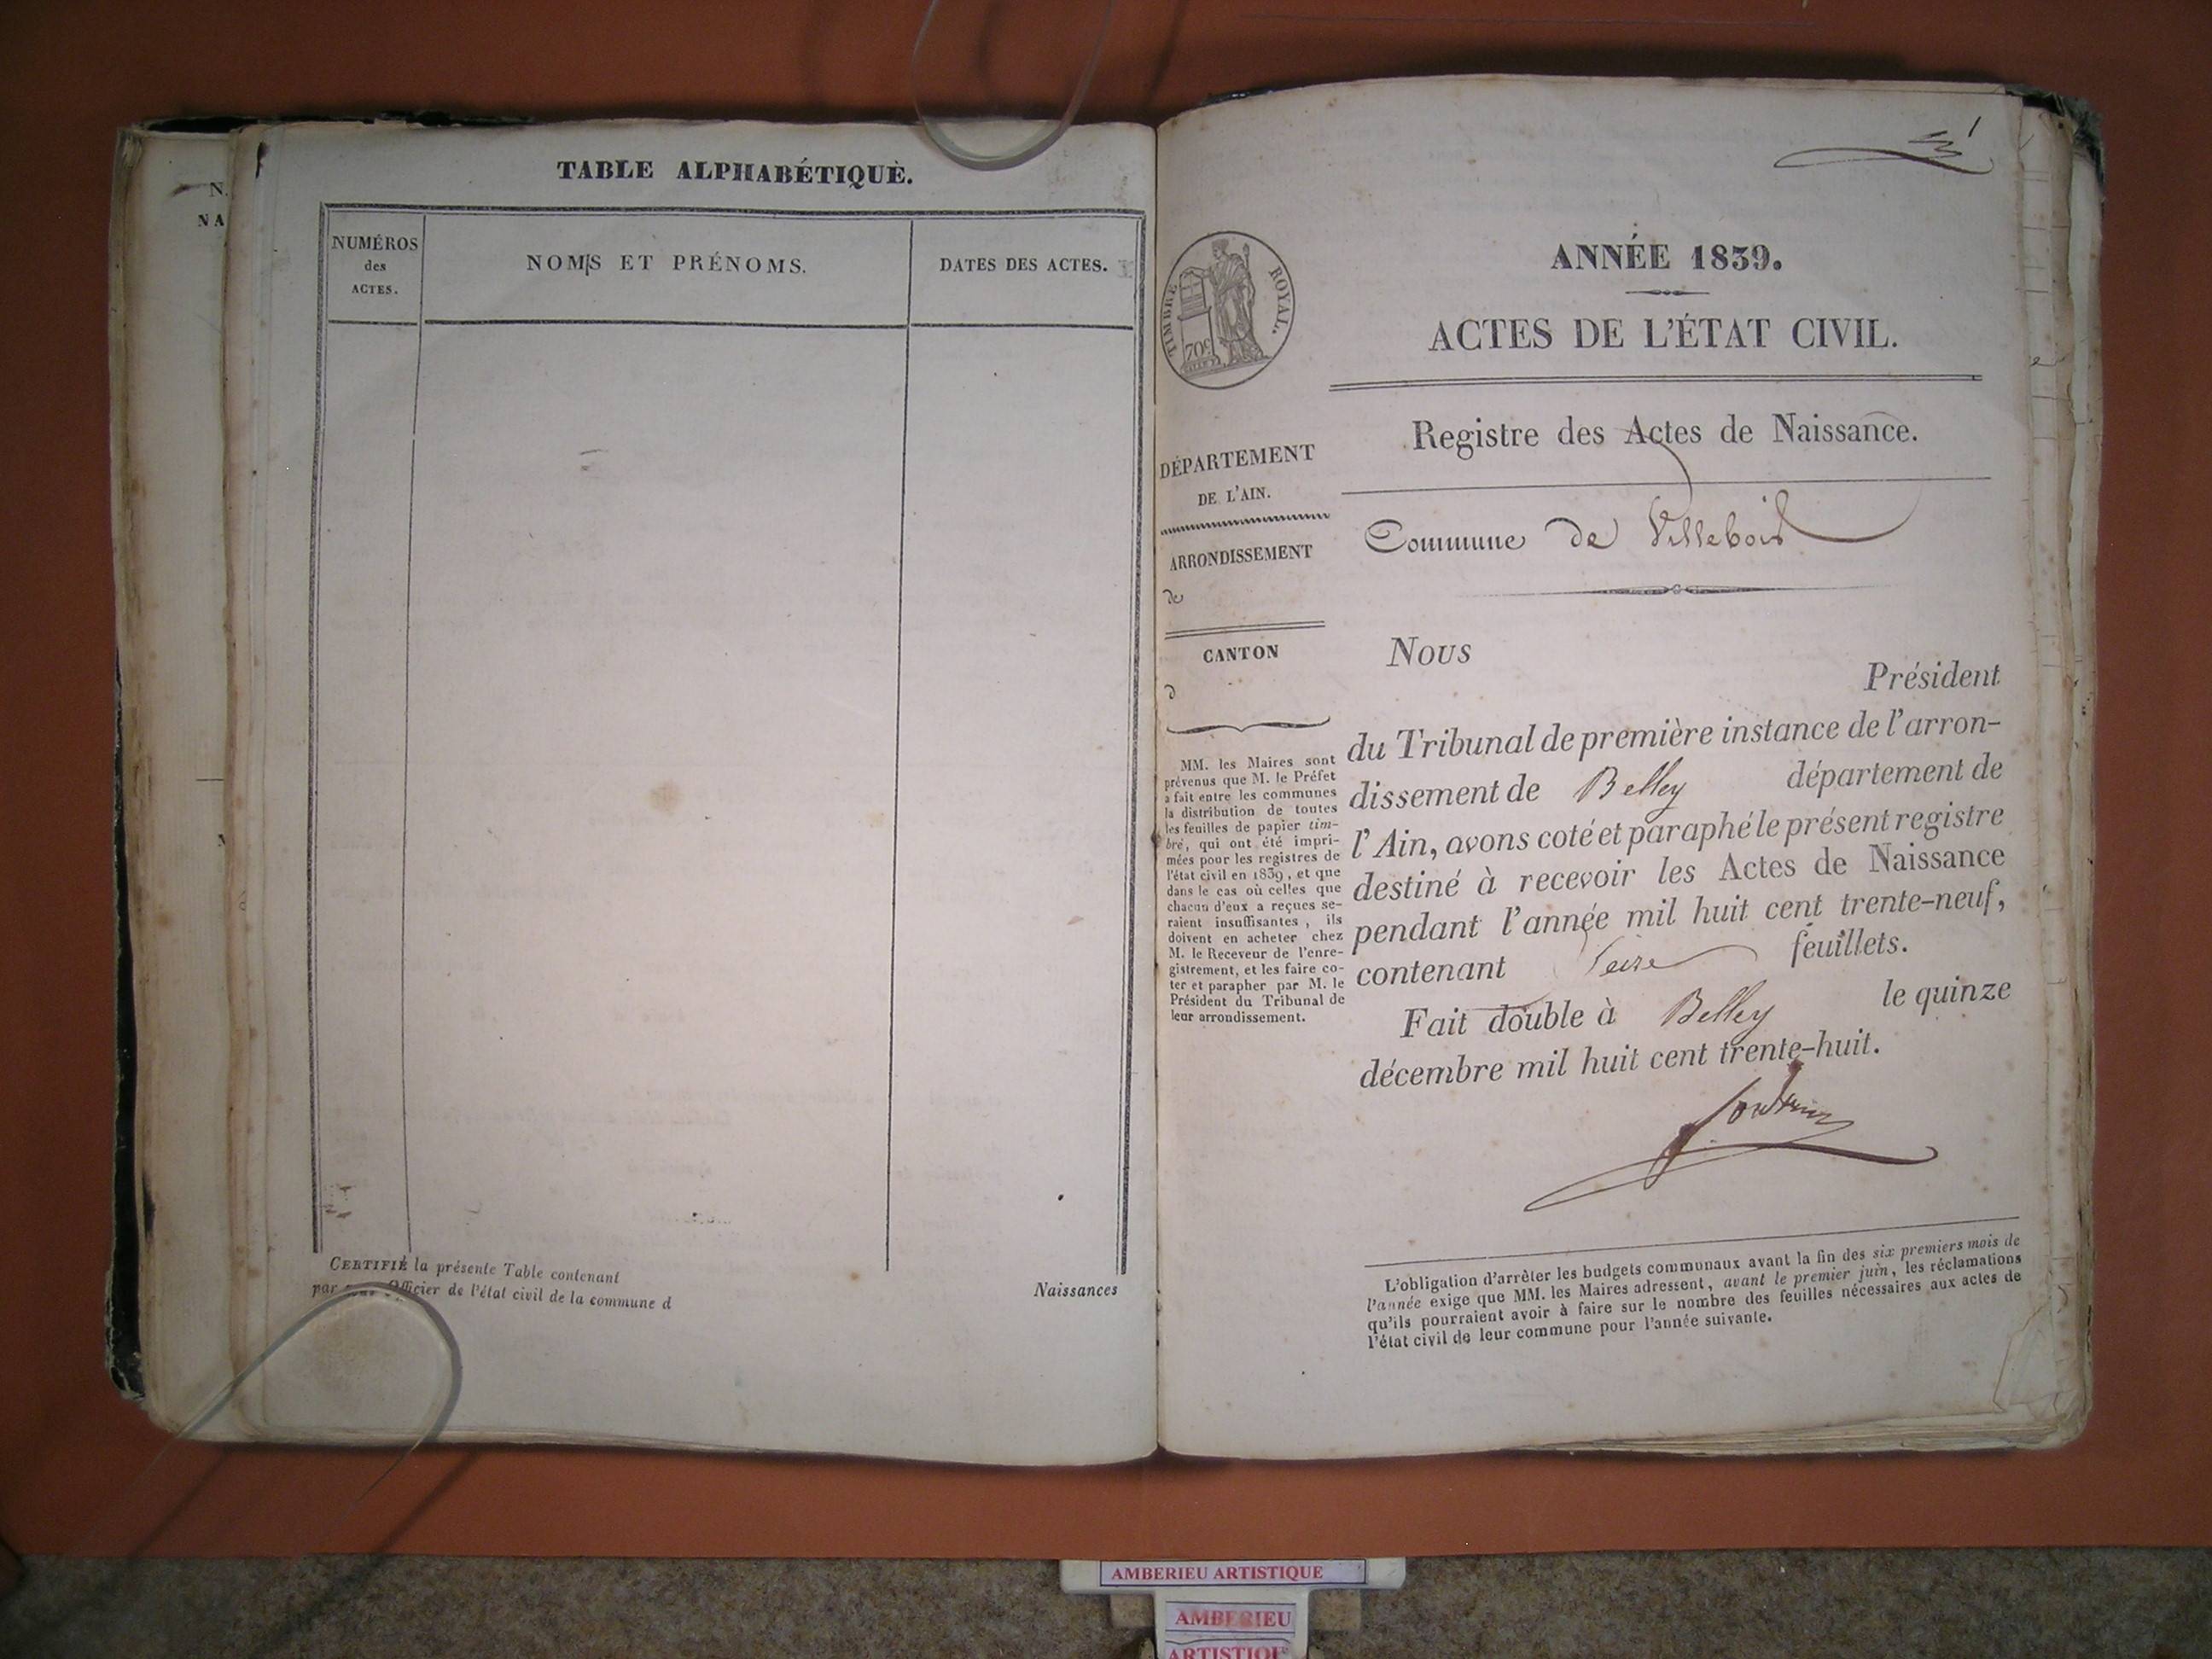 TABLE ALPHABÉTIQUE.
NUMÉROS
des
ACTES.
NOMS ET PRÉNOMS.
DATES DES ACTES.
CERTIFIÉ la présente Table contenant
Naissances
par nous Officier de l'état civil de la commune d
N.
NA
TIMBRE ROYAL.
70c
ANNÉE 1839.
ACTES DE L'ÉTAT CIVIL.
Registre des Actes de Naissance.
Commune de Villebois
DÉPARTEMENT
DE L'AIN.
ARRONDISSEMENT
de
CANTON
d
MM. les Maires sont
prévenus que M. le Préfet
a fait entre les communes
la distribution de toutes
les feuilles de papier tim-
bré, qui ont été impri-
mées pour les registres de
l'état civil en 1839, et que
dans le cas où celles que
chacun d'eux a reçues se-
raient insuffisantes, ils
doivent en acheter chez
M. le Receveur de l'enre-
gistrement, et les faire co-
ter et parapher par M. le
Président du Tribunal de
leur arrondissement.
Nous
Président
du Tribunal de première instance de l'arron-
dissement de Belley département de
l'Ain, avons coté et paraphé le présent registre
destiné à recevoir les Actes de Naissance
pendant l'année mil huit cent trente-neuf,
contenant Seize feuillets.
Fait double à Belley le quinze
décembre mil huit cent trente-huit.
L'obligation d'arrêter les budgets communaux avant la fin des six premiers mois de
l'année exige que MM. les Maires adressent, avant le premier juin, les réclamations
qu'ils pourraient avoir à faire sur le nombre des feuilles nécessaires aux actes de
l'état civil de leur commune pour l'année suivante.
AMBERIEU ARTISTIQUE
AMBERIEU
ARTISTIQUE